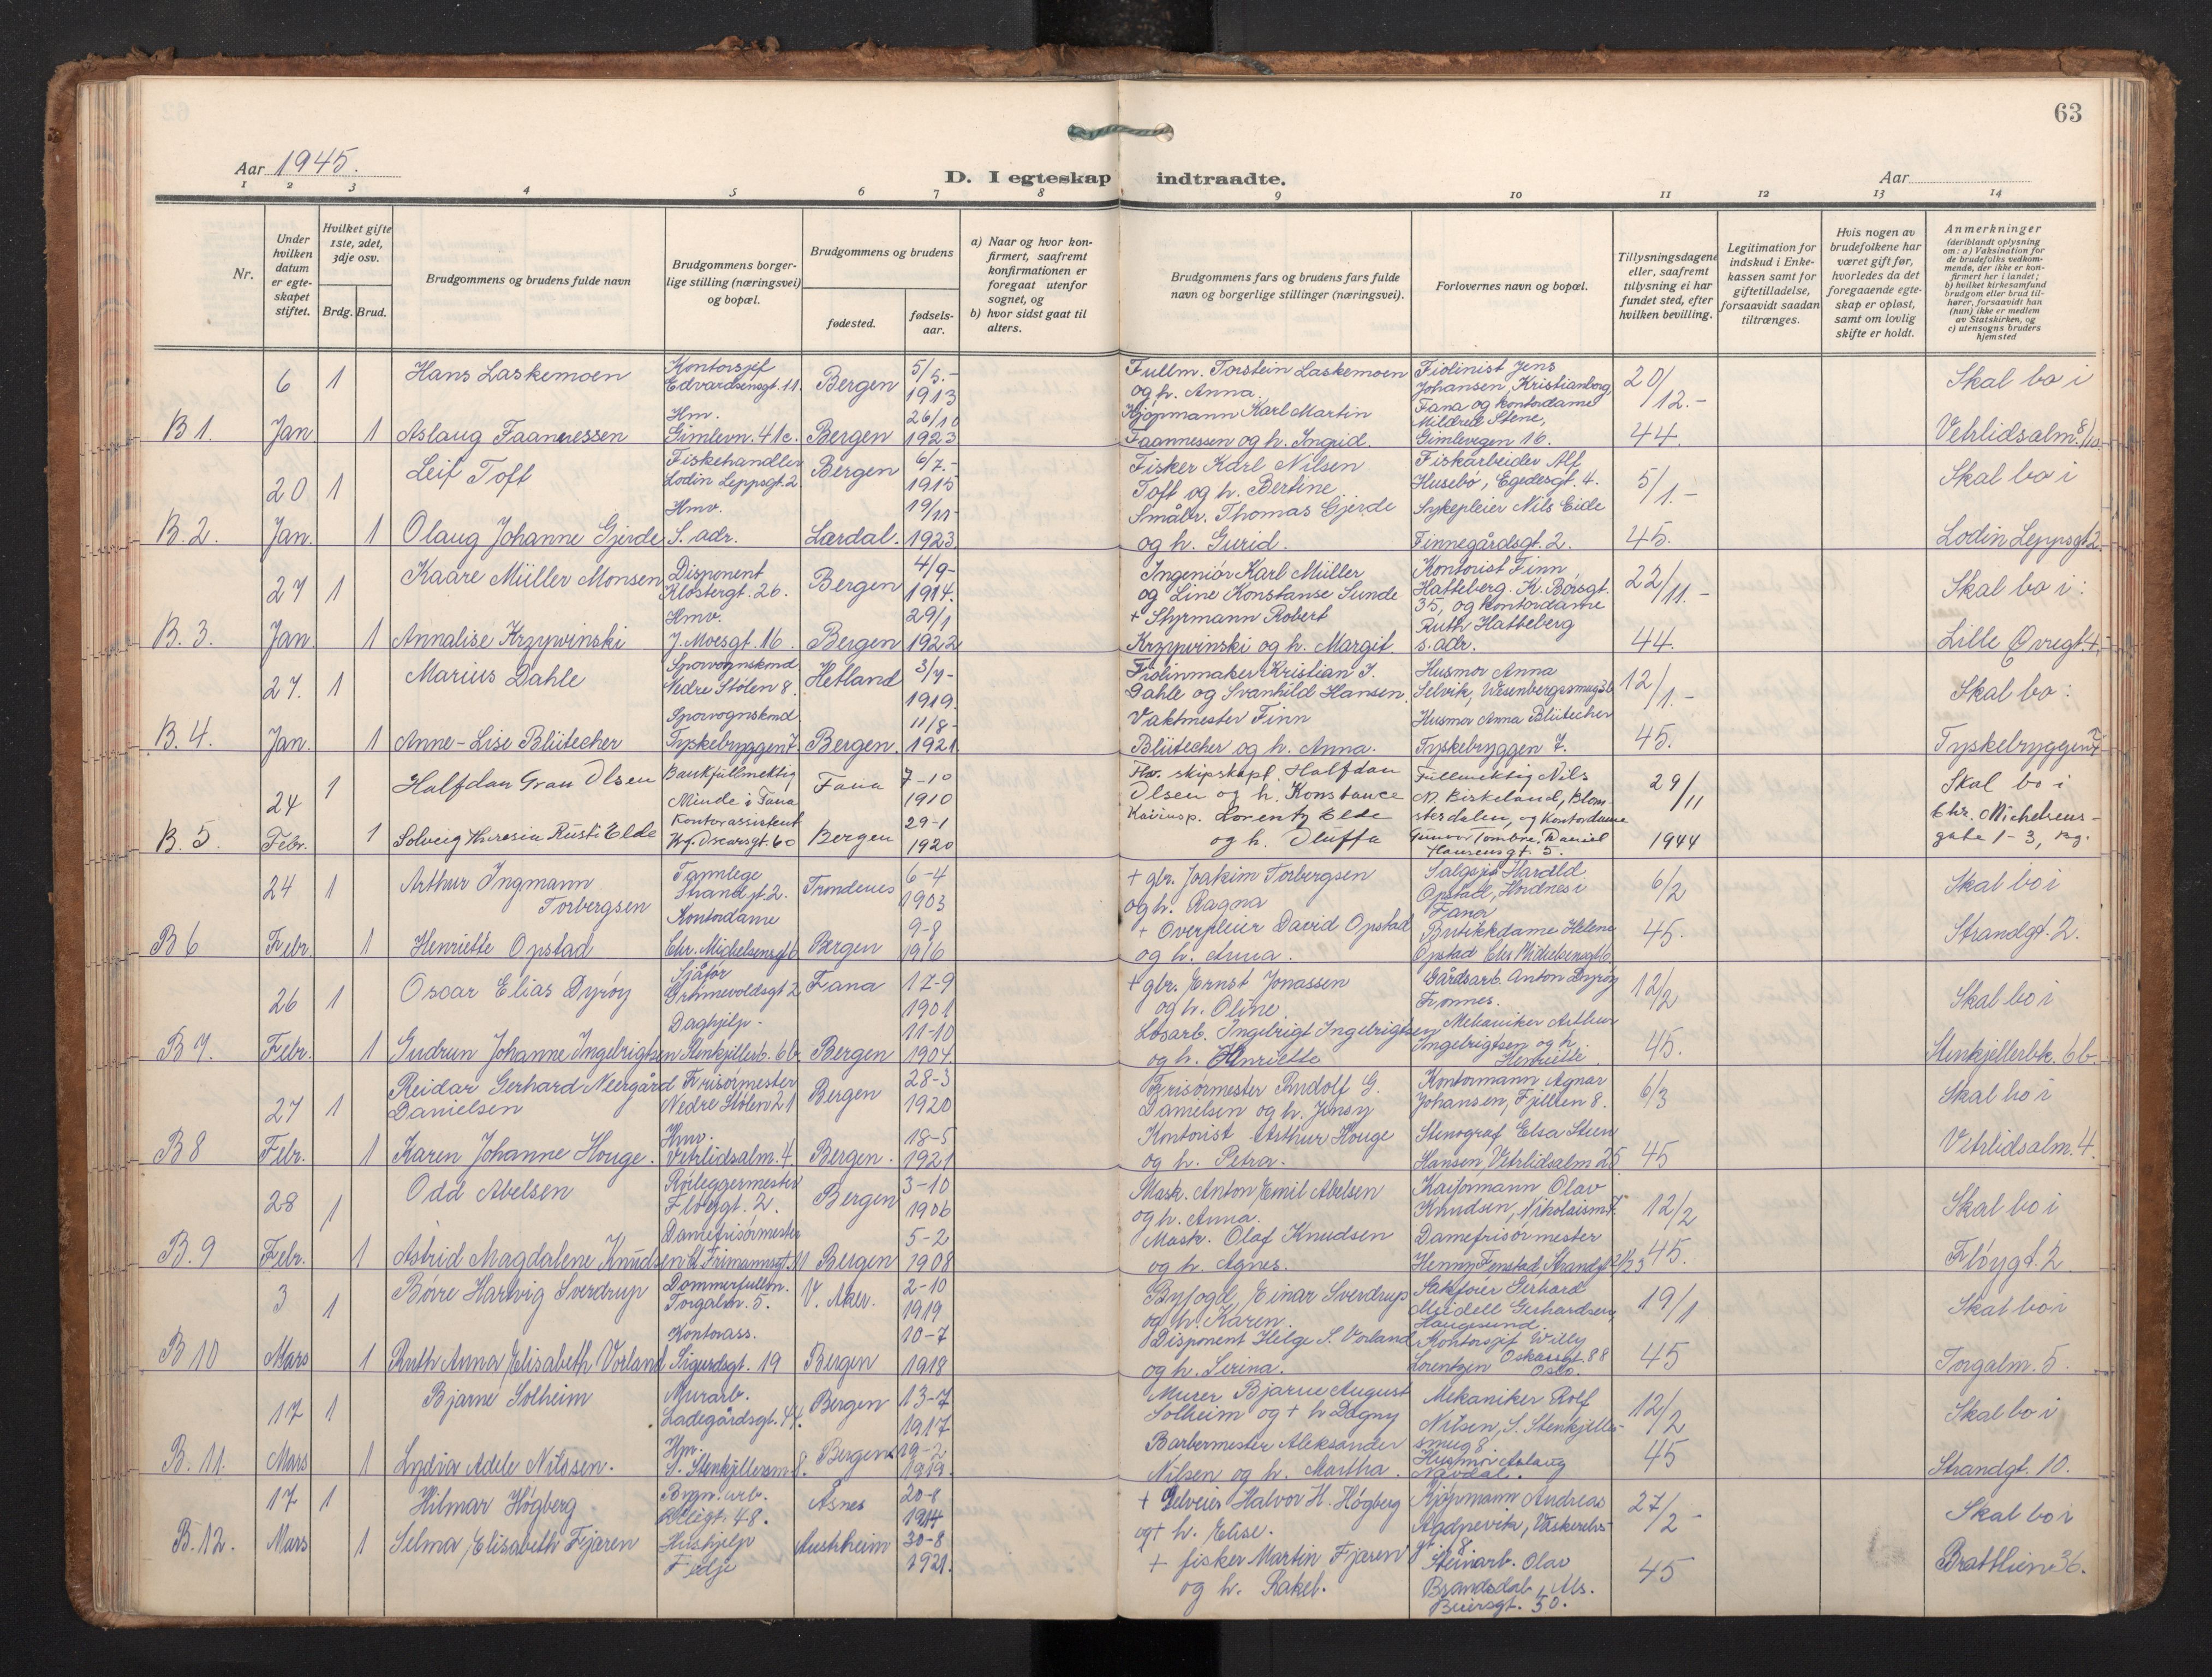 63
Aar 1945.
D. I egteskap indtraadte.
Aar
1 2 3 4 5 6 7 8 9 10 11 12 13 14
Nr.
Under hvilken datum er egte-skapet stiftet.
Hvilket gifte 1ste, 2det, 3dje osv.
Brdg. Brud.
Brudgommens og brudens fulde navn
Brudgommens borger-lige stilling (næringsvei) og bopæl.
Brudgommens og brudens
fødested.
fødsels-aar.
a) Naar og hvor kon-firmert, saafremt konfirmationen er foregaat utenfor sognet, og
b) hvor sidst gaat til alters.
Brudgommens fars og brudens fars fulde navn og borgerlige stillinger (næringsvei).
Forlovernes navn og bopæl.
Tillysningsdagene eller, saafremt tillysning ei har fundet sted, efter hvilken bevilling.
Legitimation for indskud i Enke-kassen samt for giftetilladelse, forsaavidt saadan tiltrænges.
Hvis nogen av brudefolkene har været gift før, hvorledes da det foregaaende egte-skap er opløst, samt om lovlig skifte er holdt.
Anmerkninger
(deriblandt oplysning om: a) Vaksination for de brudefolks vedkom-mende, der ikke er kon-firmert her i landet; b) hvilket kirkesamfund brudgom eller brud til-hører, forsaavidt han (hun) ikke er medlem av Statskirken, og c) utensogns bruders hjemsted
B 1. 6 Jan 1 Hans Laskemoen Kontorsjef Edvardsensgt. 11. Bergen 5/5.- 1913
1 Aslaug Faannessen Hm. Gimlevn. 41c. Bergen 26/10 1923
Fullm. Torstein Laskemoen og h. Anna.
Kjøpmann Karl Martin Faannessen og h. Ingrid.
Fiolinist Jens Johansen, Kristianborg, Fana og kontordame Mildred Stene, Gimlevegen 16.
20/12.- 44.
Skal bo i Vetrlidsalm. 8/10.
B. 2. 20 Jan. 1 Leif Toft Fiskehandler Lodin Leppsgt. 2 Bergen 6/7.- 1915
1 Olaug Johanne Gjerde Hmv. S. adr. Lærdal. 19/11- 1923.
Fisker Karl Nilsen Toft og h. Bertine
Småbr. Thomas Gjerde og h. Gurid.
Fiskarbeider Alf Husebø, Egedesgt. 4. Sykepleier Nils Eide Finnegårdsgt. 2.
5/1.- 45.
Skal bo i Lodin Leppsgt 2.
B. 3. 27 Jan. 1 Kaare Müller Monsen Disponent Klostergt. 26. Bergen 4/9- 1914.
1 Annalise Krzywinski Hmv. J. Moesgt. 16. Bergen 29/1 1922
Ingeniør Karl Müller og Line Konstanse Sunde
+ Styrmann Robert Krzywinski og h. Margit.
Kontorist Finn Hatteberg. K. Børsgt. 35, og kontordame Ruth Hatteberg s. adr.
22/11.- 44.
Skal bo i: Lille Øvregt. 4.
B. 4. 27. Jan. 1 Marius Dahle Sporvognskond. Nedre Stølen 8. Hetland 3/7- 1919.
1 Anne-Lise Blütecher Sporvognskond. Tyskebryggen 7. Bergen. 11/8- 1921.
Fiolinmaker Kristian J. Dahle og Svanhild Hansen.
Vaktmester Finn Blütecher og h. Anna.
Husmor Anna Selvik, Wesenbergsmug 3b Husmor Anna Blütecher Tyskebryggen 7.
12/1.- 45.
Skal bo: Tyskebryggen 7
B. 5. 24 Febr. 1 Halfdan Grau Olsen Bankfullmektig Minde i Fana Fana 7-10 1910
1 Solveig Theresia Rusti Elde Kontorassistent Kg. Oscarsgt. 60 Bergen 29-1 1920
Fhv. skipskapt. Halfdan Olsen og h. Konstance
Lorentz Elde og h. Oluffa
Fullmektig Nils N. Birkeland, Blom-sterdalen, og Kontordame Gunvor Daniel Hansensgt. 5.
29/11 1944
Skal bo i Chr. Michelsens-gate 1-3, Bg.
B 6 24 Febr. 1 Arthur Ingmann Torbergsen Tannlege Strandgt. 2. Trondenes 6-4 1903
1 Henriette Opstad Kontordame Chr. Michelsensgt 6 Bergen 9-8 1916
+ gbr. Joakim Torbergsen og h. Ragna
+ Overpleier David Opstad og h. Anna.
Salgssj. Harald Opstad, Hordnes i Fana Butikkdame Helene Opstad Chr. Michelsensgt 6.
6/2 45.
Skal bo i Strandgt. 2.
B 7. 26 Febr. 1 Oscar Elias Dyrøy Sjåfør Grønnevoldsgt 2 Fana 17-9 1901
1 Gudrun Johanne Ingebrigtsen Daghjelp- Stenkjellerb. 6b Bergen 11-10 1904.
+ gbr. Ernst Jonassen og h. Oline.
Løsarb. Ingebrigt Ingebrigtsen og h. Henriette
Gårdsarb. Anton Dyrøy Fromnes. Mekaniker Arthur Ingebrigtsen og h. Henriette.
12/2 45.
Skal bo i Stenkjellerbk. 6b.
B 8 27 Febr. 1 Reidar Gerhard Neergård Danielsen Frisørmester Nedre Stølen 21 Bergen 28-3 1920
1 Karen Johanne Houge. Hmv. Vetrlidsalm. 4. Bergen. 18-5 1921
Frisørmester Rudolf G. Danielsen og h. Jensy
Kontorist Arthur Houge og h. Petra.
Kontormann Agnar Johansen, Fjellien 8. Stenograf Elsa Steen Hansen, Vetrlidsalm 25
6/3 45
Skal bo i Vetrlidsalm. 4.
B. 9 28 Febr. 1 Odd Abelsen Rørleggermester Fløygt. 2. Bergen 3-10 1906
1 Astrid Magdalene Knudsen Damefrisørmester Cl. Frimannsgt. 11 Bergen 5-2 1908
Mask. Anton Emil Abelsen og h. Anna.
Mask. Olaf Knudsen og h. Agnes.
Kaiformann Olav Knudsen, Nikolaism. 7. Damefrisørmester Henny Fonstad, Strandgt 21/23
12/2 45.
Skal bo i Fløygt. 2
B 10 3 Mars 1 Børre Hartvig Sverdrup Dommerfullm. Torgalm. 5. V. Aker. 2-10 1919
1 Ruth Anna Elisabeth Vorland Kontorass. Sigurdsgt. 19 Bergen 10-7 1918
Byfogd Einar Sverdrup og h. Karen.
Disponent Helge S. Vorland og h. Serina.
Sakfører Gerhard Meidell Gerhardsen, Haugesund. Kontorsjef Willy Lorentzen Oskarsgt. 88 Oslo.
19/1 45
Skal bo i Torgalm. 5.
B. 11. 17 Mars 1 Bjarne Solheim Murarb. Ladegårdsgt. 44. Bergen 13-7 1917
1 Lydia Adele Nilssen. Hm. S. Stenkjellersm. 8. Bergen 19-2 1919.
Murer Bjarne August Solheim og + h Dagny
Barbermester Aleksander Nilsen og h. Martha.
Mekaniker Rolf Nilsen, S. Stenkjeller-smug 8 Husmor Aslaug Navdal.
12/2 45
Skal bo i Strandgt. 10.
B. 12. 17 Mars 1 Hilmar Høgberg Bygn. arb. 48. Åsnes 20-8 1914
1 Selma Elisabeth Fjæren Hushjelp Fedje Austrheim 30-8 1921.
+ Selveier Halvor H. Høgberg og + h. Elise.
+ fisker Martin Fjæren og h. Rakel.
Kjøpmann Andreas Agdpevik, Vaskerelvs-gt. 18. Steinarb. Olav Brandsdal, Ms. Beiersgt. 50.
27/2- 45
Skal bo i Brattlien 36.